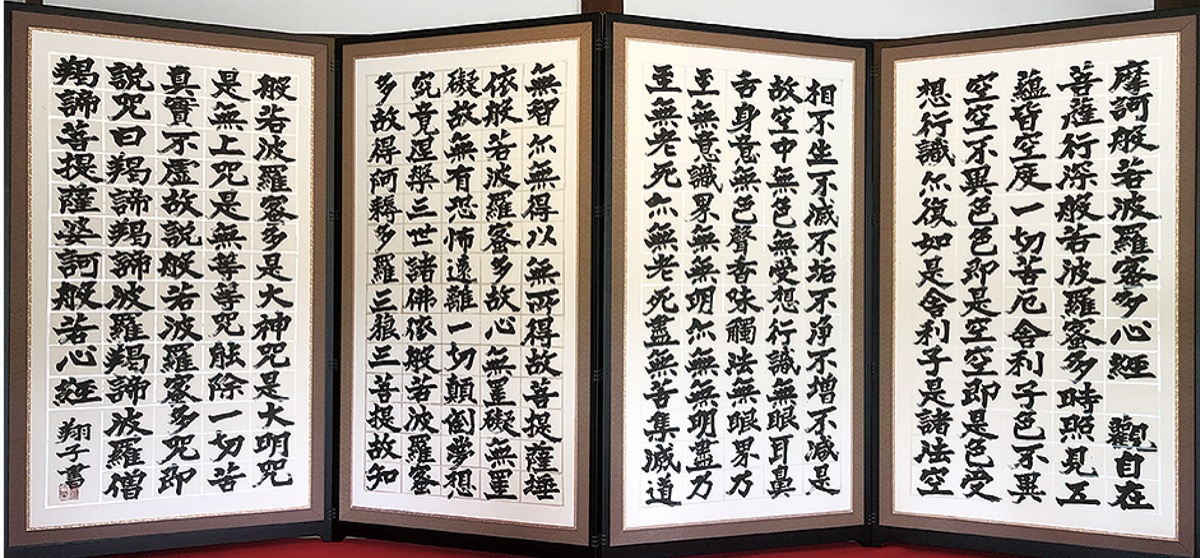 摩訶般若波羅蜜多心經 觀自在
菩薩行深般若波羅蜜多時照見五
蘊皆空度一切苦厄舎利子色不異
空空不異色色即是空空即是色受
想行識亦復如是舎利子是諸法空
相不生不滅不垢不浄不増不減是
故空中無色無受想行識無眼耳鼻
舌身意無色聲香味觸法無眼界乃
至無意識界無無明亦無無明盡乃
至無老死亦無老死盡無苦集滅道
無智亦無得以無所得故菩提薩埵
依般若波羅蜜多故心無罣礙無罣
礙故無有恐怖遠離一切顛倒夢想
究竟涅槃三世諸佛依般若波羅蜜
多故得阿耨多羅三藐三菩提故知
般若波羅蜜多是大神咒是大明咒
是無上咒是無等等咒能除一切苦
真實不虚故説般若波羅蜜多咒即
説咒曰羯諦羯諦波羅羯諦波羅僧
羯諦菩提薩婆訶般若心經 翔子書